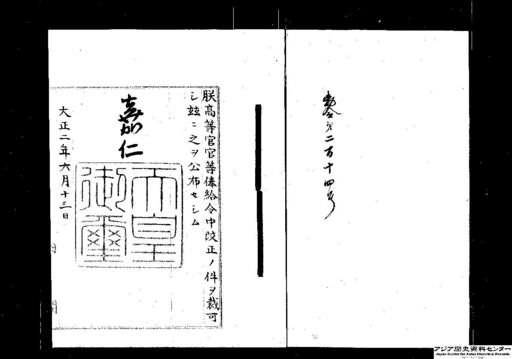 勅令第二百十四号
朕高等官官等俸給令中改正ノ件ヲ裁可
シ玆ニ之ヲ公布セシム
嘉仁
天皇御璽
大正二年六月十三日
アジア歴史資料センター
Japan Center for Asian Historical Records